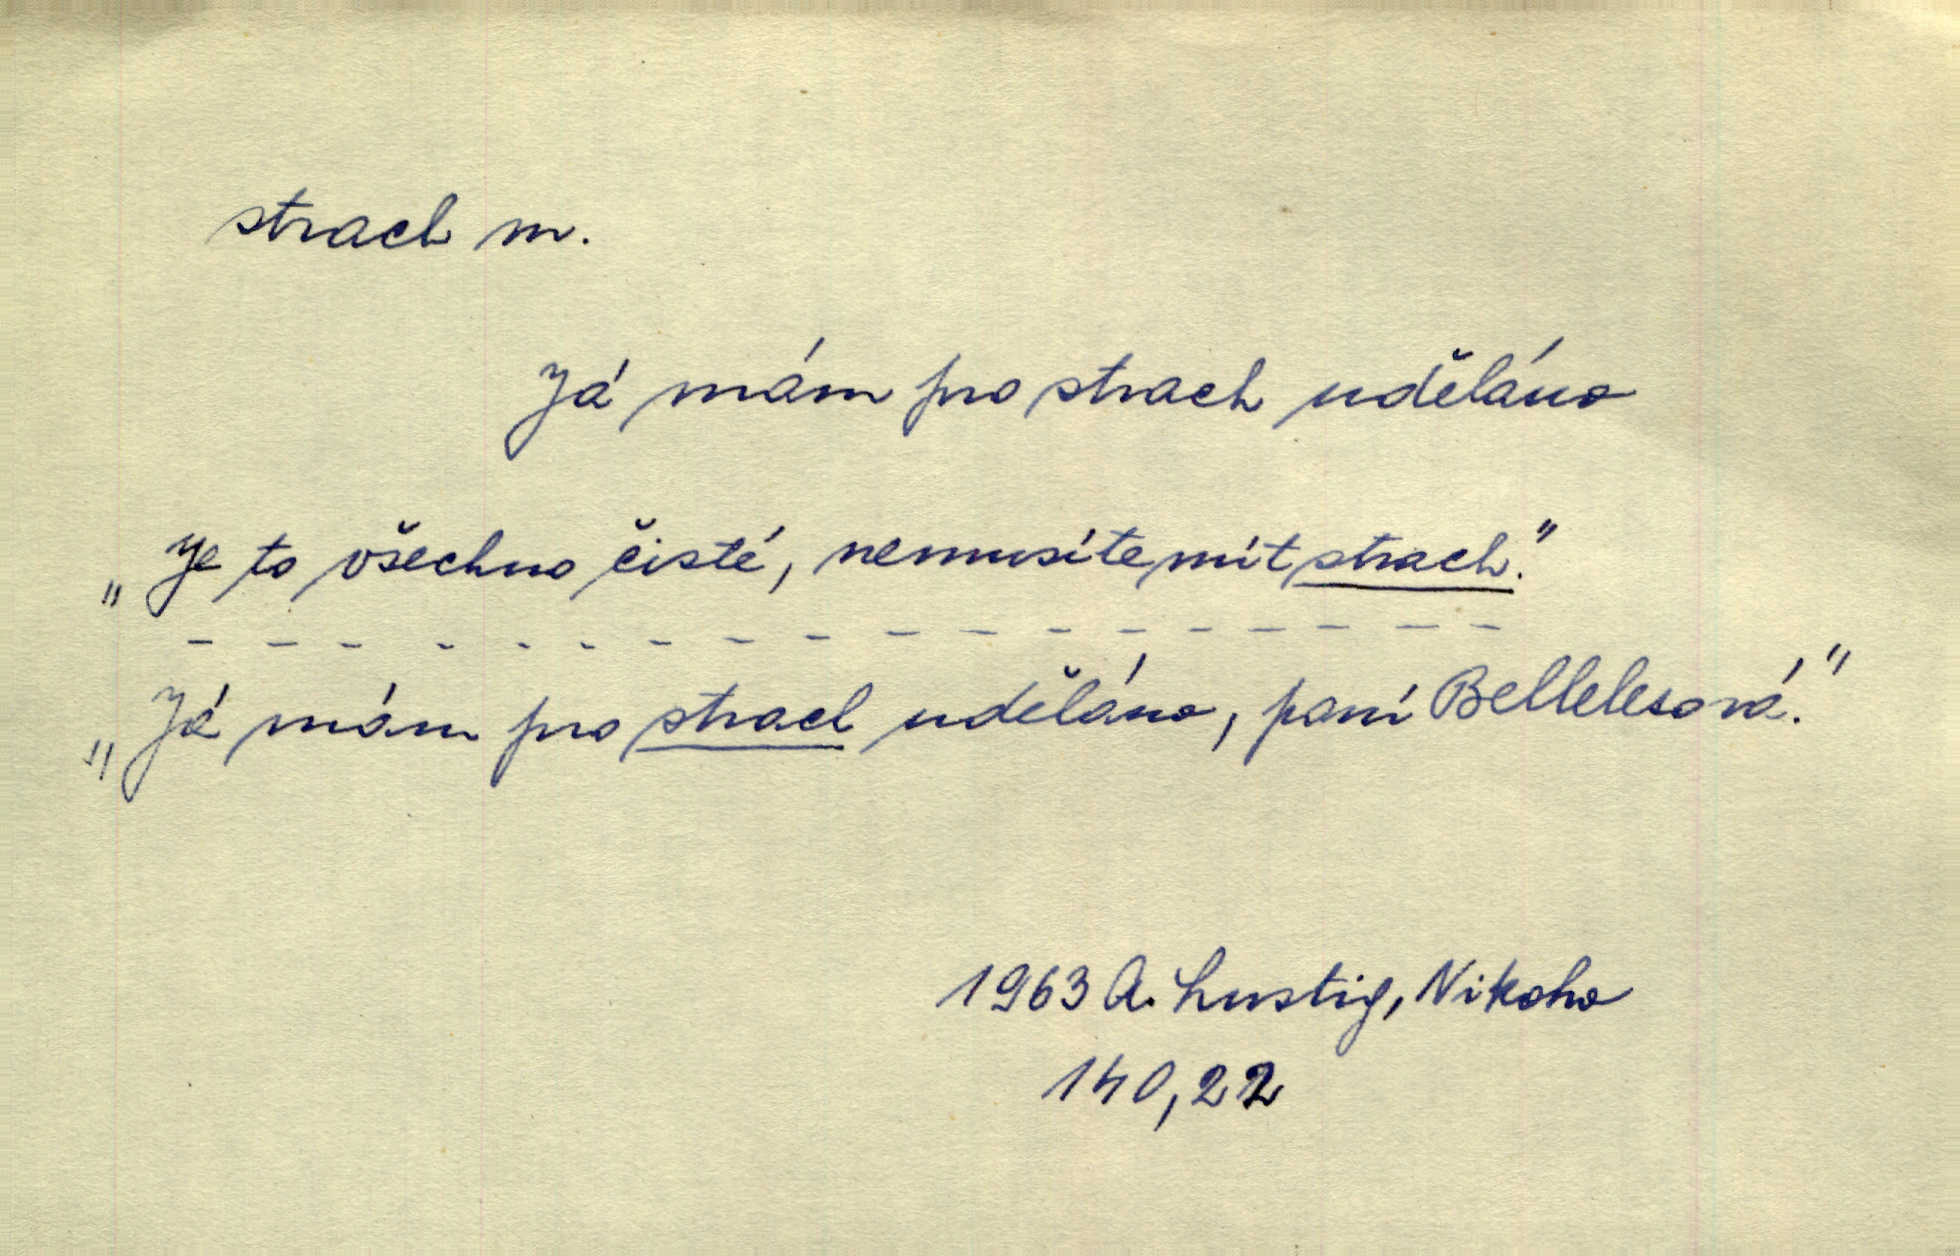 strach m.
Já mám pro strach uděláno
„Je to všechno čisté, nemusíte mít strach."
– – – – – – – – – – – – – – – – – –
„Já mám pro strach uděláno, paní Bellelesová."
1963 A. Lustig, Nikoho
140,22